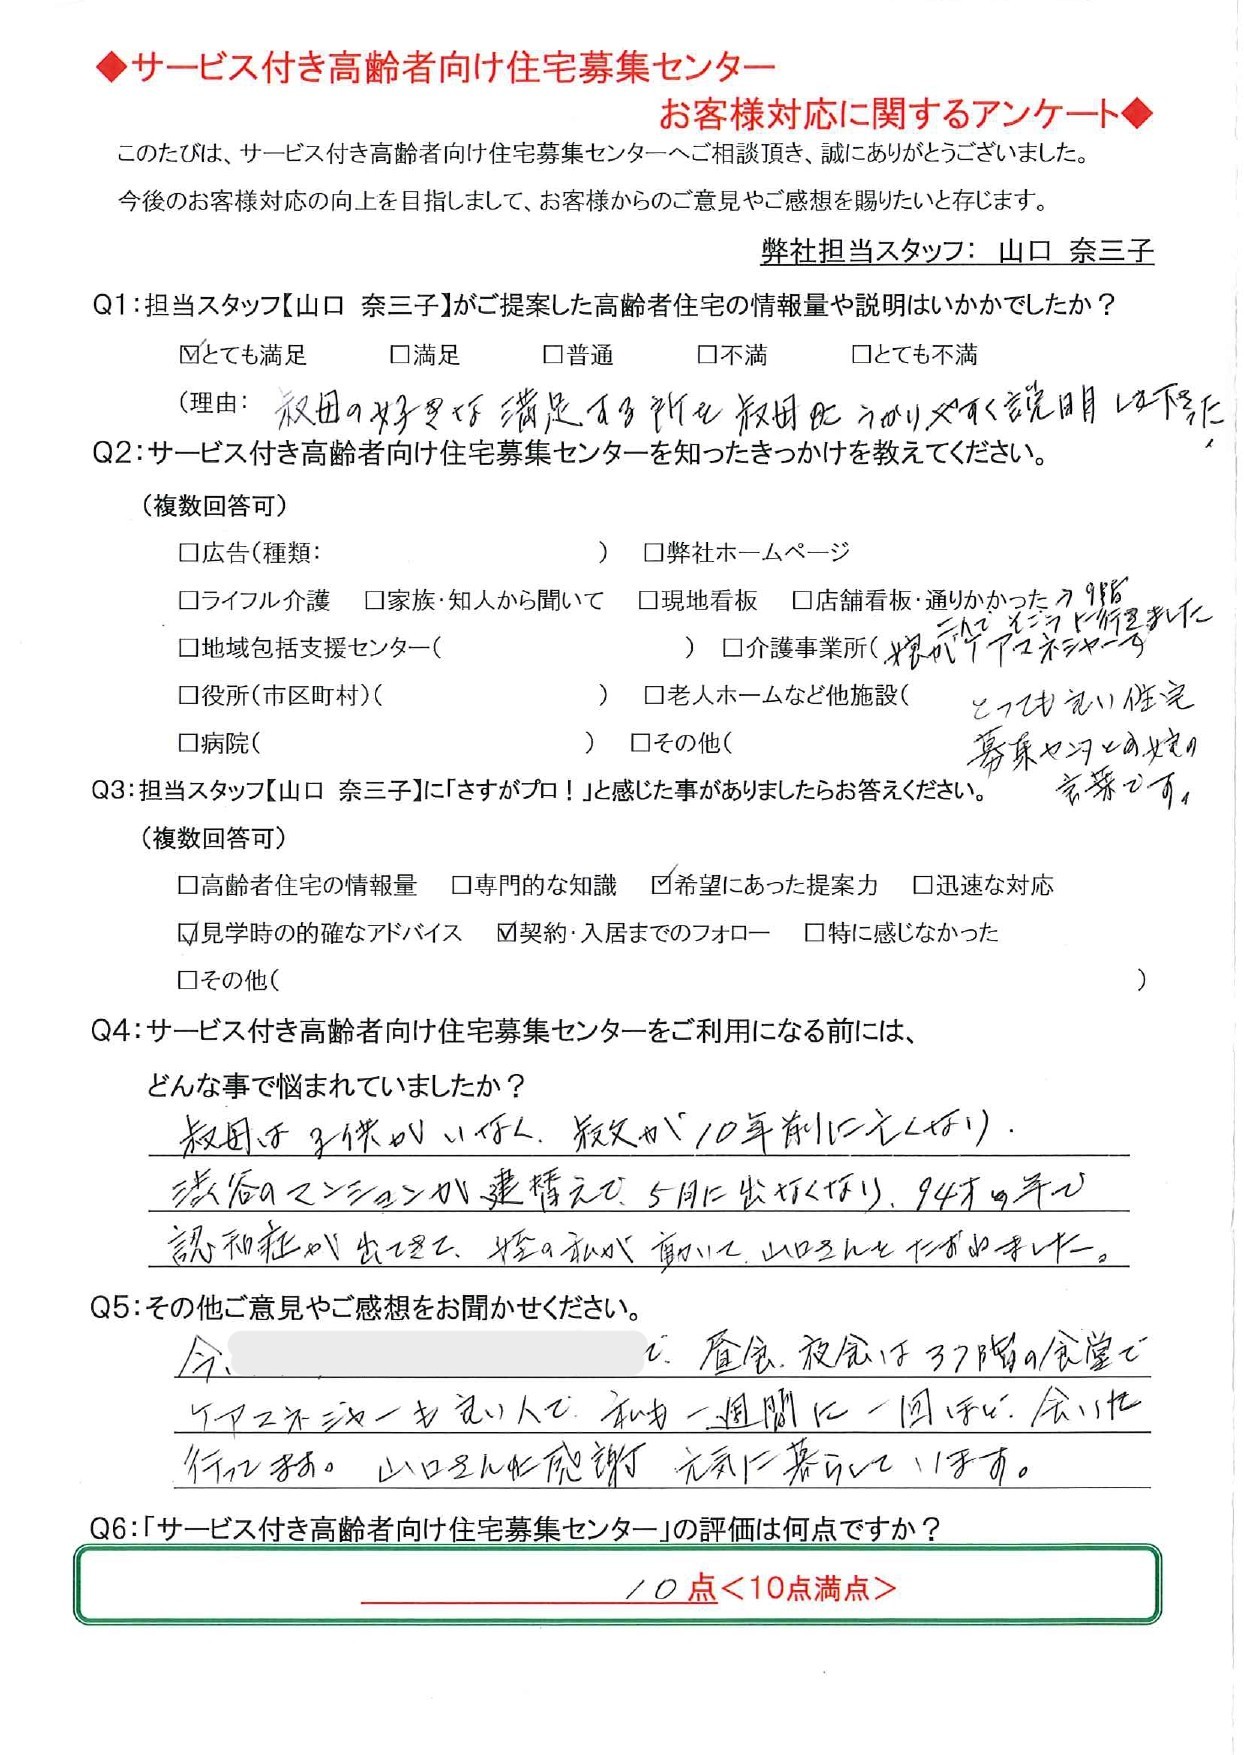 ◆サービス付き高齢者向け住宅募集センター
お客様対応に関するアンケート◆
このたびは、サービス付き高齢者向け住宅募集センターへご相談頂き、誠にありがとうございました。
今後のお客様対応の向上を目指しまして、お客様からのご意見やご感想を賜りたいと存じます。
弊社担当スタッフ： 山口 奈三子
Q1：担当スタッフ【山口 奈三子】がご提案した高齢者住宅の情報量や説明はいかかでしたか？
☑とても満足 □満足 □普通 □不満 □とても不満
（理由： 叔母の好きな満足する所を叔母にうかりやすく説明しま下さった
Q2：サービス付き高齢者向け住宅募集センターを知ったきっかけを教えてください。
（複数回答可）
□広告（種類： ） □弊社ホームページ
□ライフル介護 □家族・知人から聞いて □現地看板 □店舗看板・通りかかった 9階
二人で そごうに行きました
□地域包括支援センター（ ） □介護事業所（ 娘がケアマネジャーで
□役所（市区町村）（ ） □老人ホームなど他施設（ とっても良い住宅
□病院（ ） □その他（ 募集センタとの娘の
言葉です。
Q3：担当スタッフ【山口 奈三子】に「さすがプロ！」と感じた事がありましたらお答えください。
（複数回答可）
□高齢者住宅の情報量 □専門的な知識 ☑希望にあった提案力 □迅速な対応
☑見学時の的確なアドバイス ☑契約・入居までのフォロー □特に感じなかった
□その他（ ）
Q4：サービス付き高齢者向け住宅募集センターをご利用になる前には、
どんな事で悩まれていましたか？
叔母は子供がいなく、叔父が10年前に亡くなり、
渋谷のマンションが建替えで、5月に出なくなり、94才の年で
認知症が出てきて、姪の私が動いて、山口さんをたずねました。
Q5：その他ご意見やご感想をお聞かせください。
今、 で、昼食、夜食は37階の食堂で
ケアマネジャーも良い人で、私も一週間に一回ほど、会いに
行ってます。 山口さんに感謝 元気に暮らしています。
Q6：「サービス付き高齢者向け住宅募集センター」の評価は何点ですか？
10点＜10点満点＞